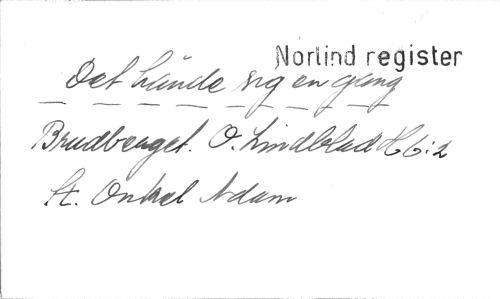 Norlind register
Det hände sig en gång
Brudberget. O. Lindblad H6:2
St. Onkel Adam